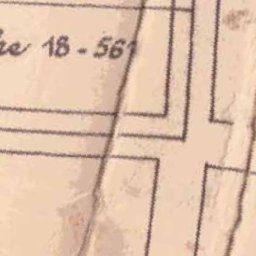 he 18-561